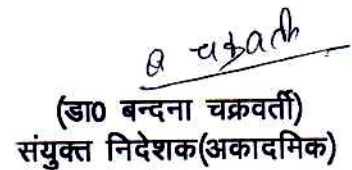 (डा0 बन्दना चक्रवर्ती)
संयुक्त निदेशक(अकादमिक)